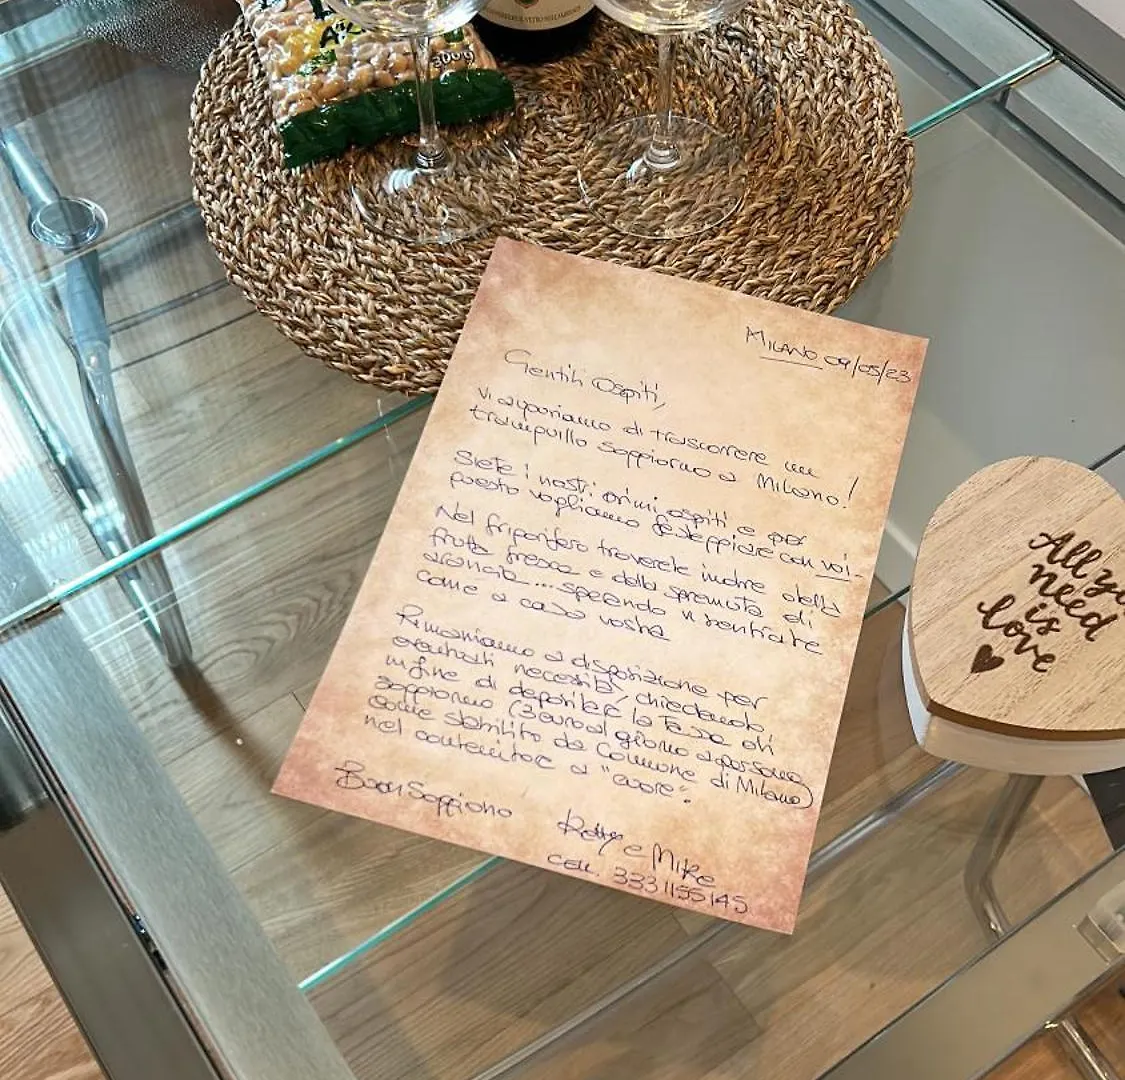 300g
MILANO 09/05/23
Gentili Ospiti,
Vi auguriamo di trascorrere un
tranquillo soggiorno a Milano!
Siete i nostri primi ospiti e per
questo vogliamo festeggiare con voi.
Nel frigorifero troverete inoltre della
frutta fresca e della spremuta di
arancia... sperando vi sentiate
come a casa vostra
Rimaniamo a disposizione per
eventuali necessità, chiedendo
infine di depositare la Tassa di
soggiorno (3 euro al giorno a persona
come stabilito da Comune di Milano)
nel contenitore a "cuore".
Buon Soggiorno
e Mike
CELL. 3331155145
All yo
need
is
love